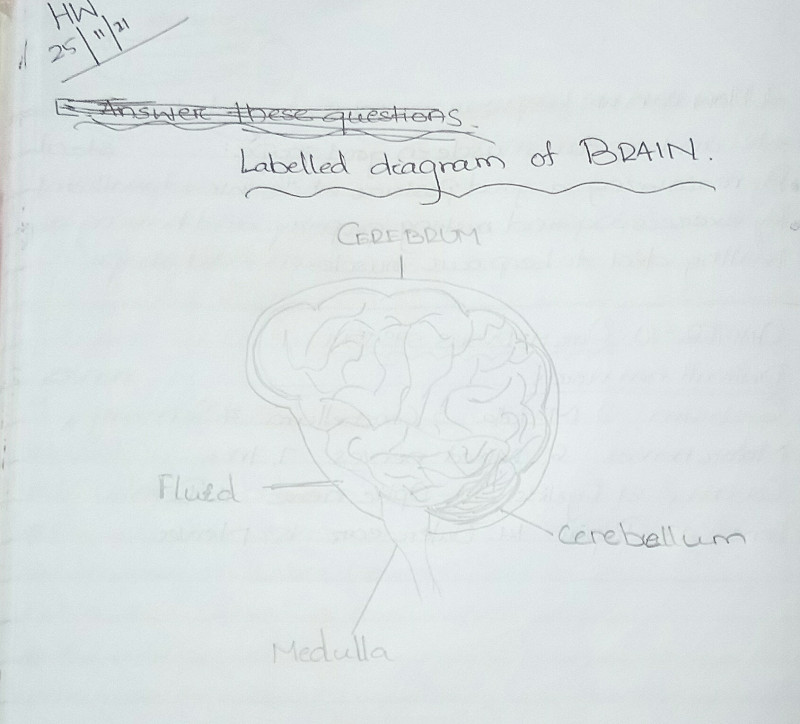 HW
25/11/21
Answer these questions.
Labelled diagram of BRAIN.
CEREBRUM
Fluid
Cerebellum
Medulla